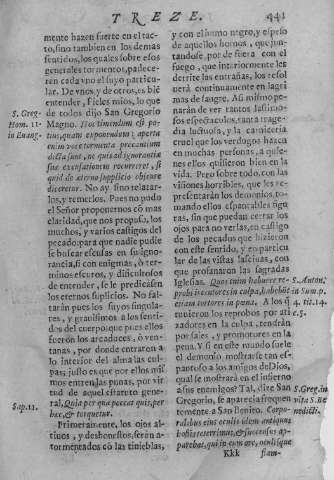 TREZE. 441
mente hazen fuerte en el tac-
to, sino tambien en los demas
sentidos, los quales sobre esos
generales tormentos, padece-
ren cada vno el suyo particu-
lar. De vnos, y de otros, es bié
entender, Fieles mios, lo que
de todos dijo San Gregorio
S. Greg.
Hom. 11.
in Euang.
Magno. Hoc timendum est po-
tius, quam exponendum; aperta
enim voce tormenta peccantium
dicta sunt, ne quis ad ignorantiæ
suæ excusationem recurreret, si
quid de æterno supplicio obscure
diceretur. No ay sino relatar-
los, y temerlos. Pues no pudo
el Señor proponernos cõ mas
claridad, que nos propuso, los
muchos, y varios castigos del
pecado, para que nadie pudie
se buscar escusas en su igno-
rancia, si con enigmas, ò ter-
minos escuros, y dificultosos
de entender, se le predicasen
los eternos suplicios. No fal-
tarán pues los suyos singula-
res, y grauisimos à los senti-
dos del cuerpo; que pues ellos
fueron los arcaduces, ò ven-
tanas, por donde entraron à
lo interior del alma las cul-
pas; justo es que por ellos mis
mos entren las penas, por vir
tud de aquel estatuto gene-
Sap. 11.
ral, Quia per quæ peccat quis, per
hæc, & torquetur.
Primeramente, los ojos al-
tiuos, y deshonestos, serán a-
tormentados cõ las tinieblas,
y con el humo negro, y espeso
de aquellos hornos, que jun-
tandose, por de fuera con el
fuego, que interiormente les
derrite las entrañas, los resol
uerá continuamente en lagri
mas de sangre. Asimismo pe-
narán de ver tantos lastimo-
sos espectaculos, tanta trage-
dia luctuosa, y la carniceria
cruel que los verdugos hazen
en muchas personas, à quie-
nes ellos quisieron bien en la
vida. Pero sobre todo, con las
visiones horribles, que les re-
presentarán los demonios, to-
mando ellos espantables figu-
ras, sin que puedan cerrar los
ojos para no verlas, en castigo
de los pecados que hizieron
con este sentido, y en particu
lar de las vistas lasciuas, con
que profanaron las sagradas
Iglesias. Quos enim habuere re-
S. Anton.
in Sum. p.
4. tit. 14.
c. 5.
probi incitatores in culpa, habebũt
etiam tortores in pena. A los q̃
tuuieron los reprobos por ati
zadores en la culpa, tendrán
por fales, y promotores en la
pena. Y si en este mundo suele
el demonio mostrarse tan es-
pantoso à los amigos de Dios,
qual se mostrará en el infierno
à sus enemigos? Tal, dize San
S. Greg. in
vita S. Be
nedicti.
Gregorio, se aparecia frequen
temente à San Benito. Corpo-
ralibus eius oculis idem antiquus
hostis teterrimus, & succensus ap-
parebat, qui in eum ore, oculisque
Kkk flam-